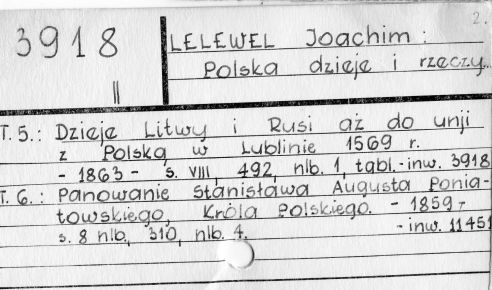 2.
3918
II
LELEWEL Joachim:
Polska dzieje i rzeczy...
T. 5.: Dzieje Litwy i Rusi aż do unji
z Polską w Lublinie 1569 r.
- 1863 - s. VIII, 492, nlb. 1, tabl. - inw. 3918
T. 6.: Panowanie Stanisława Augusta Ponia-
towskiego, Króla Polskiego. - 1859 -
s. 8 nlb., 310, nlb. 4. - inw. 11451